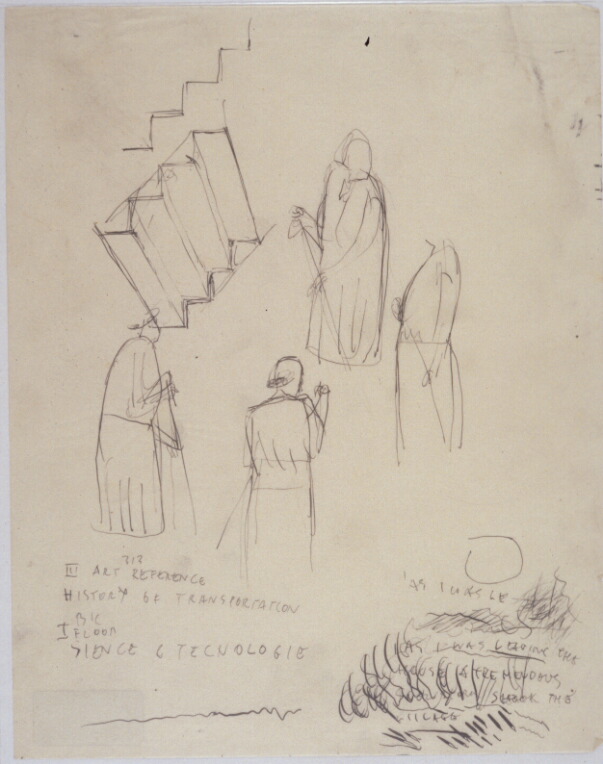 III ART 313 REFERENCE
HISTORY OF TRANSPORTATION
I FLOOR
SIENCE & TECNOLOGIE
"AS I WAS LE
AS I WAS LEAVING THE
HOUSE A TREMENDOUS
SHOOK THE
VILLAGE